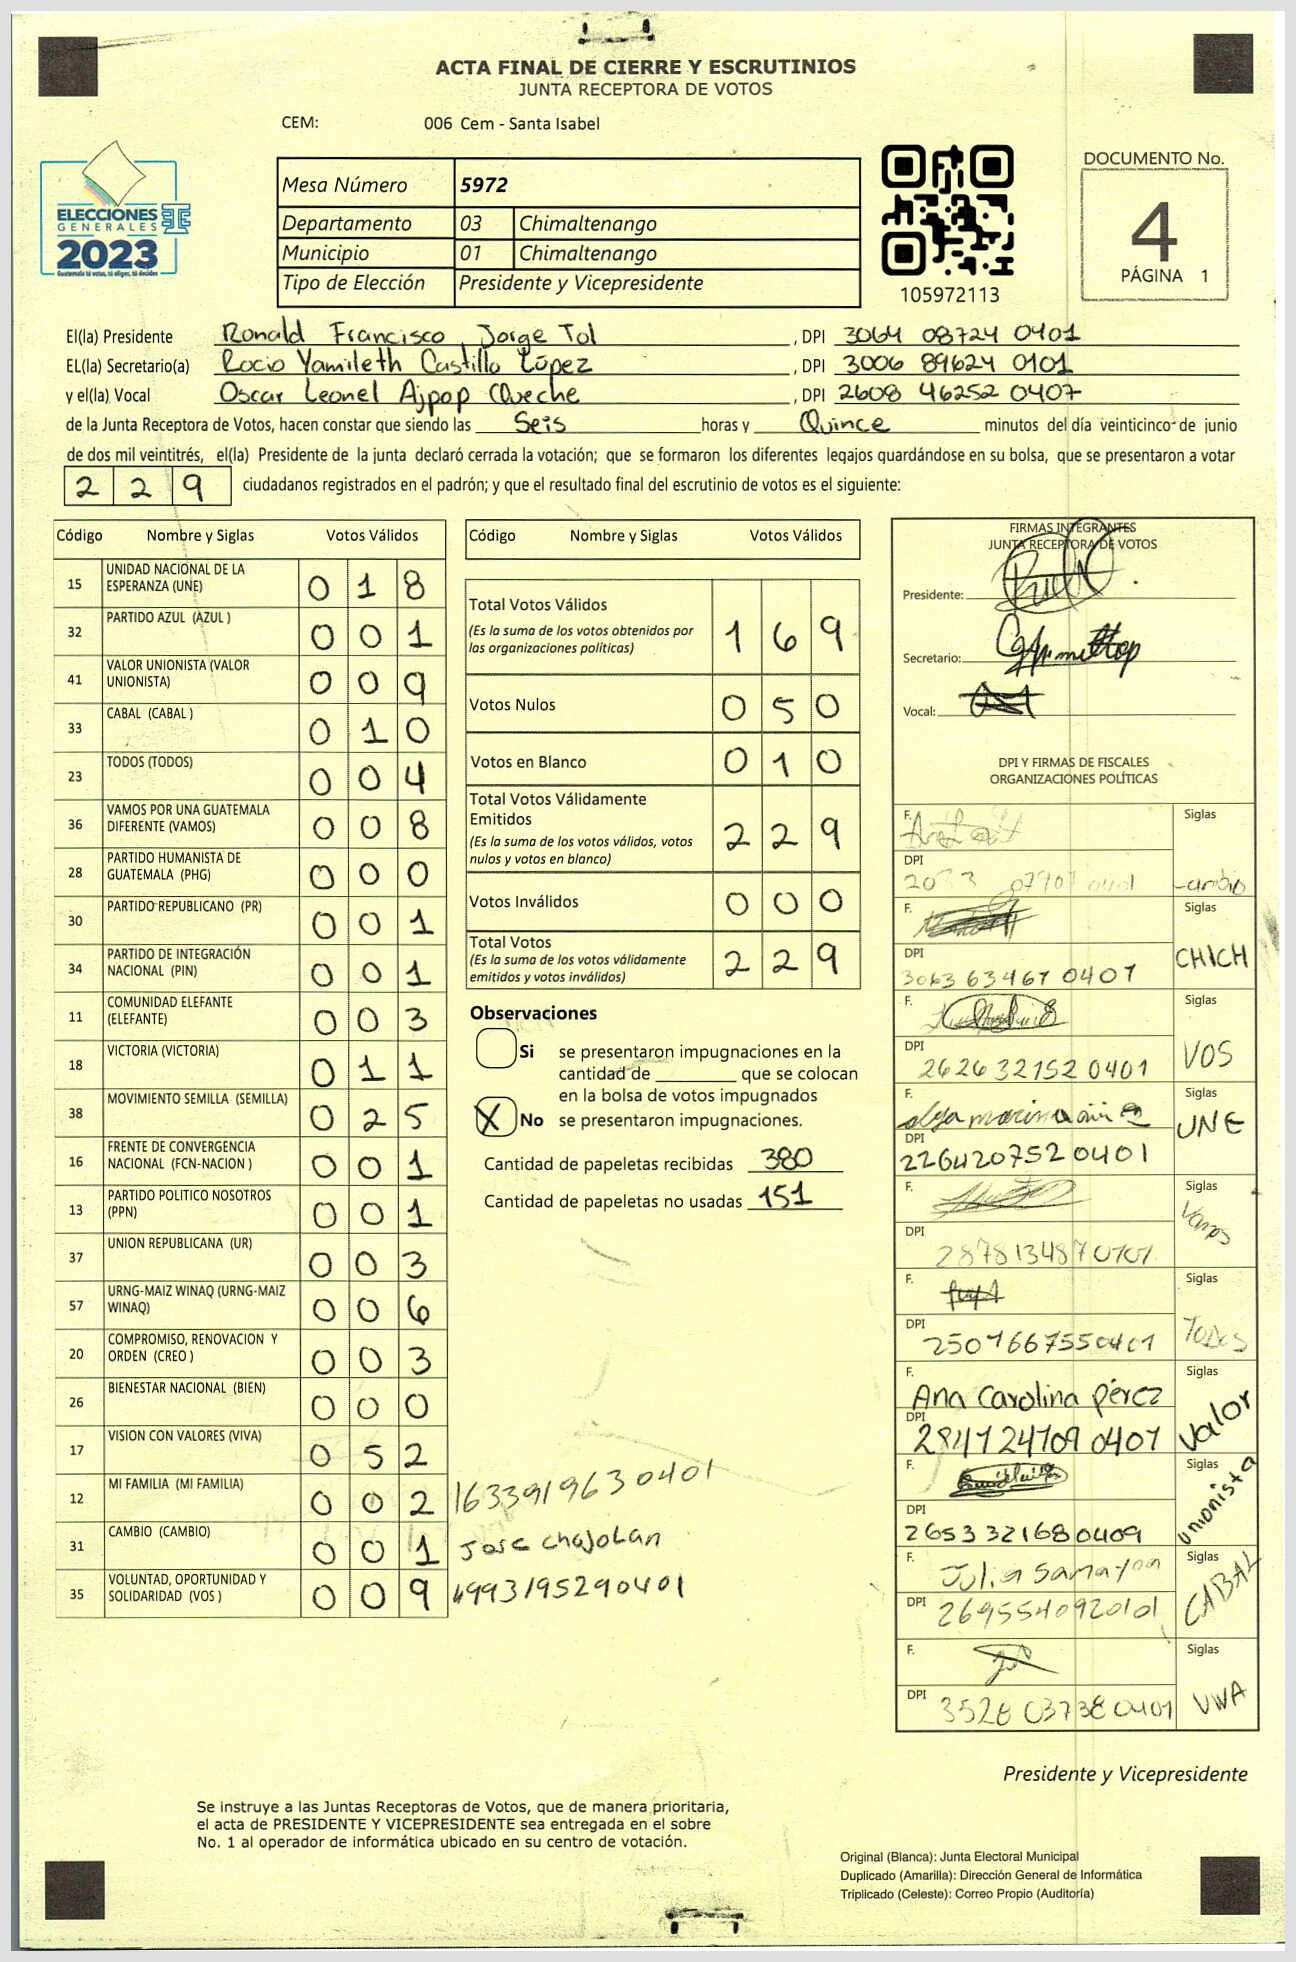 ACTA FINAL DE CIERRE Y ESCRUTINIOS
JUNTA RECEPTORA DE VOTOS
CEM: 006 Cem - Santa Isabel
ELECCIONES
GENERALES
2023
Guatemala tú votas, tú eliges, tú decides
Mesa Número 5972
Departamento 03 Chimaltenango
Municipio 01 Chimaltenango
Tipo de Elección Presidente y Vicepresidente
105972113
DOCUMENTO No.
4
PÁGINA 1
El(la) Presidente Ronald Francisco Jorge Tol , DPI 3064 08724 0401
EL(la) Secretario(a) Rocio Yamileth Castillo López , DPI 3006 89624 0101
y el(la) Vocal Oscar Leonel Ajpop Queche , DPI 2608 46252 0407
de la Junta Receptora de Votos, hacen constar que siendo las Seis horas y Quince minutos del día veinticinco de junio
de dos mil veintitrés, el(la) Presidente de la junta declaró cerrada la votación; que se formaron los diferentes legajos guardándose en su bolsa, que se presentaron a votar
229 ciudadanos registrados en el padrón; y que el resultado final del escrutinio de votos es el siguiente:
Código Nombre y Siglas Votos Válidos
15 UNIDAD NACIONAL DE LA ESPERANZA (UNE) 0 1 8
32 PARTIDO AZUL (AZUL ) 0 0 1
41 VALOR UNIONISTA (VALOR UNIONISTA) 0 0 9
33 CABAL (CABAL ) 0 1 0
23 TODOS (TODOS) 0 0 4
36 VAMOS POR UNA GUATEMALA DIFERENTE (VAMOS) 0 0 8
28 PARTIDO HUMANISTA DE GUATEMALA (PHG) 0 0 0
30 PARTIDO REPUBLICANO (PR) 0 0 1
34 PARTIDO DE INTEGRACIÓN NACIONAL (PIN) 0 0 1
11 COMUNIDAD ELEFANTE (ELEFANTE) 0 0 3
18 VICTORIA (VICTORIA) 0 1 1
38 MOVIMIENTO SEMILLA (SEMILLA) 0 2 5
16 FRENTE DE CONVERGENCIA NACIONAL (FCN-NACION ) 0 0 1
13 PARTIDO POLITICO NOSOTROS (PPN) 0 0 1
37 UNION REPUBLICANA (UR) 0 0 3
57 URNG-MAIZ WINAQ (URNG-MAIZ WINAQ) 0 0 6
20 COMPROMISO, RENOVACION Y ORDEN (CREO ) 0 0 3
26 BIENESTAR NACIONAL (BIEN) 0 0 0
17 VISION CON VALORES (VIVA) 0 5 2
12 MI FAMILIA (MI FAMILIA) 0 0 2
31 CAMBIO (CAMBIO) 0 0 1
35 VOLUNTAD, OPORTUNIDAD Y SOLIDARIDAD (VOS ) 0 0 9
1633919630401
Jose Chajolan
4993195290401
Código Nombre y Siglas Votos Válidos
Total Votos Válidos 1 6 9
(Es la suma de los votos obtenidos por
las organizaciones políticas)
Votos Nulos 0 5 0
Votos en Blanco 0 1 0
Total Votos Válidamente
Emitidos 2 2 9
(Es la suma de los votos válidos, votos
nulos y votos en blanco)
Votos Inválidos 0 0 0
Total Votos 2 2 9
(Es la suma de los votos válidamente
emitidos y votos inválidos)
Observaciones
Si se presentaron impugnaciones en la
cantidad de ________ que se colocan
en la bolsa de votos impugnados
X No se presentaron impugnaciones.
Cantidad de papeletas recibidas 380
Cantidad de papeletas no usadas 151
FIRMAS INTEGRANTES
JUNTA RECEPTORA DE VOTOS
Presidente:
Secretario:
Vocal:
DPI Y FIRMAS DE FISCALES
ORGANIZACIONES POLÍTICAS
F. Siglas
DPI
Cambio
F. Siglas
DPI
3063 63467 0407 CHICH
F. Siglas
DPI
2626 32152 0401 VOS
F. Siglas
DPI
2264207520401 UNE
F. Siglas
DPI
2878134870101 Vamos
F. Siglas
DPI
2507667550401 TODOS
F. Siglas
Ana Carolina Pérez
DPI
2847 24709 0407 Valor
F. Siglas
DPI
2653321680409 unionista
F. Siglas
Julia Samayoa
DPI
2695540920101 CABAL
F. Siglas
DPI
3528 03738 0401 VIVA
Presidente y Vicepresidente
Se instruye a las Juntas Receptoras de Votos, que de manera prioritaria,
el acta de PRESIDENTE Y VICEPRESIDENTE sea entregada en el sobre
No. 1 al operador de informática ubicado en su centro de votación.
Original (Blanca): Junta Electoral Municipal
Duplicado (Amarilla): Dirección General de Informática
Triplicado (Celeste): Correo Propio (Auditoría)